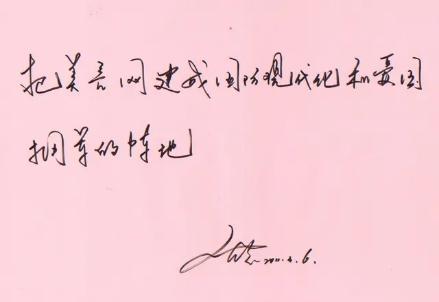 把美言网建成国防现代化和爱国
拥军的阵地
2011.4.6.